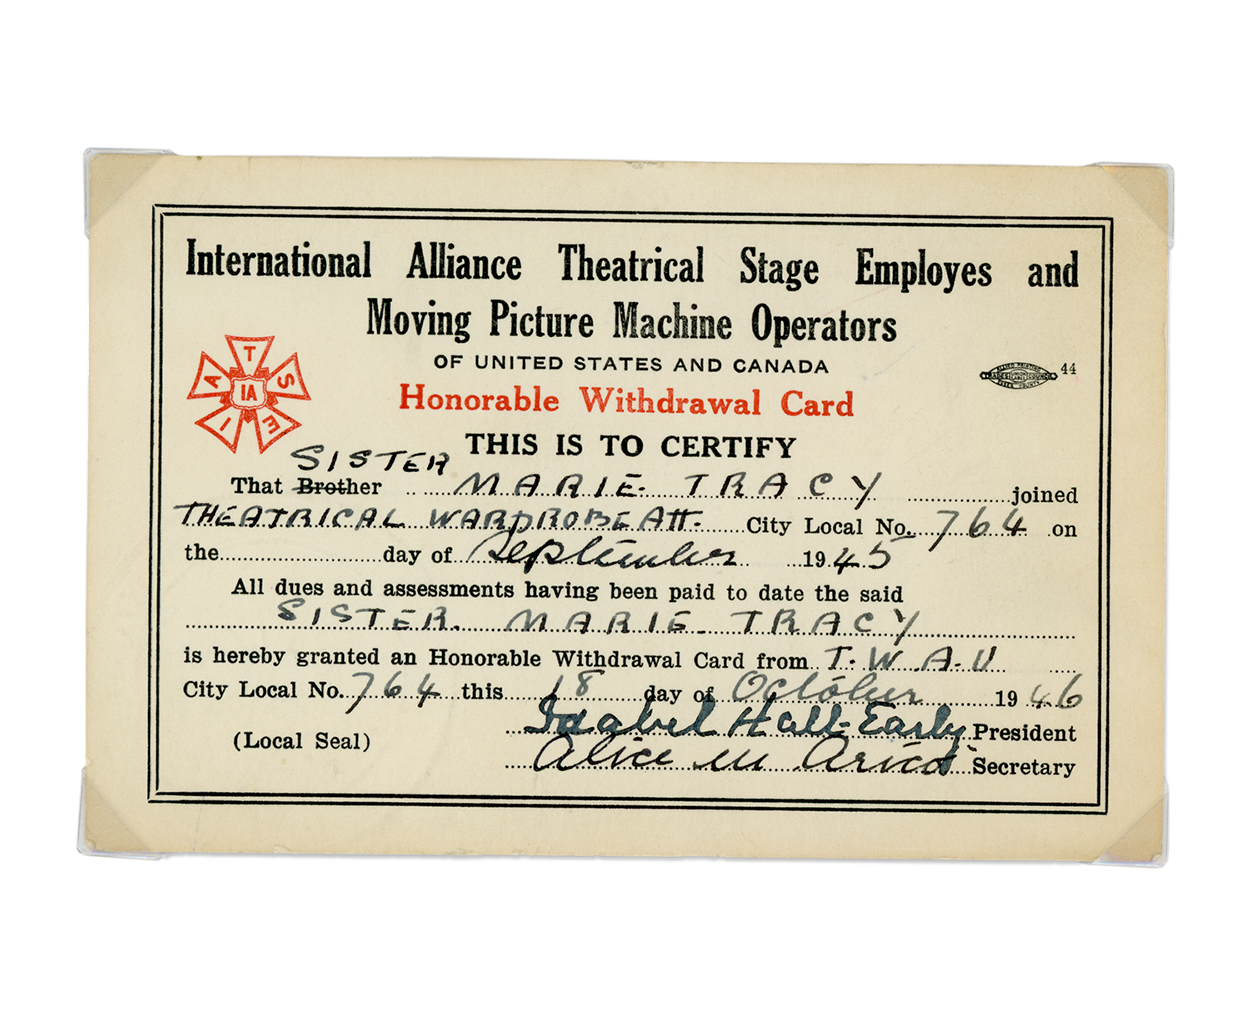 International Alliance Theatrical Stage Employes and
Moving Picture Machine Operators
OF UNITED STATES AND CANADA
Honorable Withdrawal Card
THIS IS TO CERTIFY
I A T S E
IA
44
SISTER
That Brother MARIE TRACY joined
THEATRICAL WARDROBE Att. City Local No. 764 on
the day of September 1945
All dues and assessments having been paid to date the said
SISTER MARIE TRACY
is hereby granted an Honorable Withdrawal Card from T.W.A.U
City Local No. 764 this 18 day of October 1946
Isabel Hall-Early President
(Local Seal)
Alice M Arico Secretary